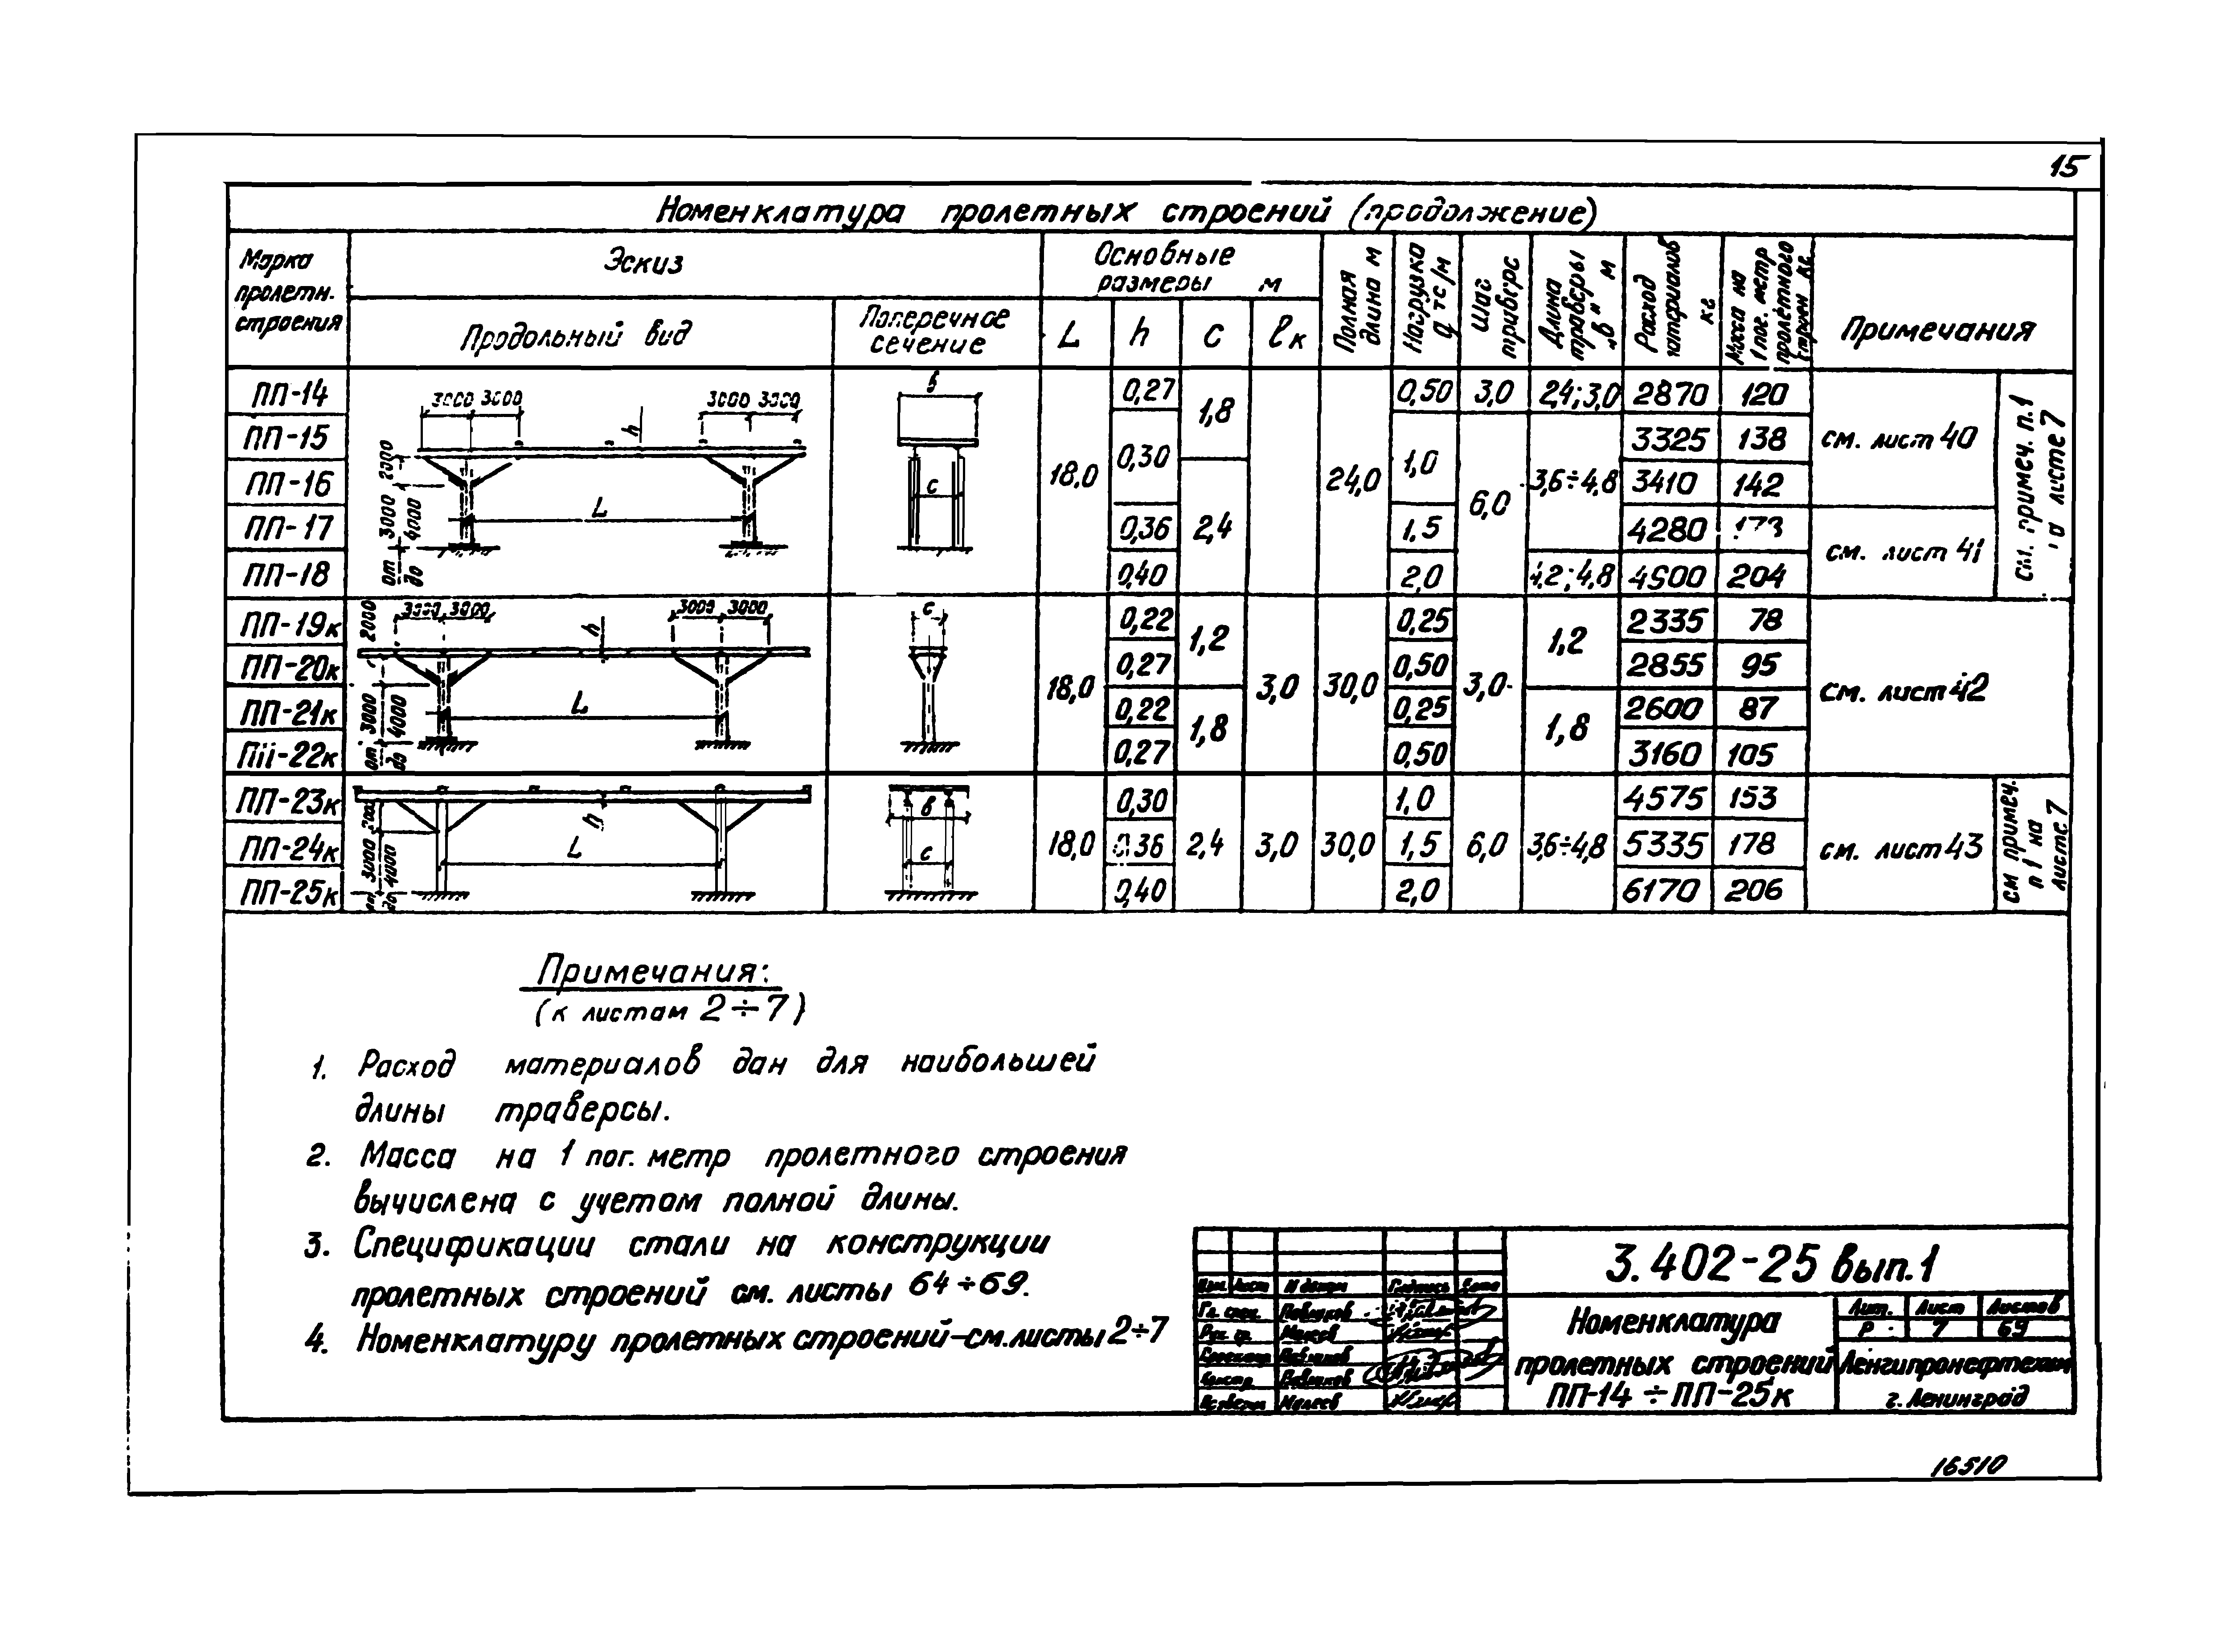 15
Номенклатура пролетных строений (продолжение)
Марка пролетн. строения
Эскиз
Продольный вид
Поперечное сечение
Основные размеры м
L h c lк
Полная длина м
Нагрузка q тс/м
Шаг траверс
Длина траверсы "в" м
Расход материалов кг
Масса на 1 пог. метр пролетного строен. кг
Примечания
ПП-14 0,27 0,50 3,0 2,4; 3,0 2870 120
ПП-15 0,30 1,8 1,0 3325 138 см. лист 40
ПП-16 18,0 24,0 6,0 3,6÷4,8 3410 142
ПП-17 0,36 2,4 1,5 4280 см. лист 41
ПП-18 0,40 2,0 4,2; 4,8 204
3000 3000 3000 3000
h
L
2000
от 3000
до 4000
c
ПП-19к 0,22 1,2 0,25 1,2 2335 78
ПП-20к 0,27 0,50 2855 95
18,0 3,0 30,0 3,0 см. лист 42
ПП-21к 0,22 1,8 0,25 1,8 2600 87
ПП-22к 0,27 0,50 3160 105
3000 3000 3000 3000
2000
h
L
от 3000
до 4000
c
ПП-23к 0,30 1,0 4575 153
ПП-24к 18,0 0,36 2,4 3,0 30,0 1,5 6,0 3,6÷4,8 5335 178 см. лист 43
ПП-25к 0,40 2,0 6170 206
h
L
3000
до 4000
в
c
см примеч. п1 на листе 7
Примечания:
(к листам 2÷7)
1. Расход материалов дан для наибольшей
длины траверсы.
2. Масса на 1 пог. метр пролетного строения
вычислена с учетом полной длины.
3. Спецификации стали на конструкции
пролетных строений см. листы 64÷69.
4. Номенклатуру пролетных строений-см.листы 2÷7
3.402-25 вып.1
Номенклатура
пролетных строений
ПП-14 ÷ ПП-25к
Лит. Лист Листов
Р 7 69
Ленгипронефтехим
г. Ленинград
16510